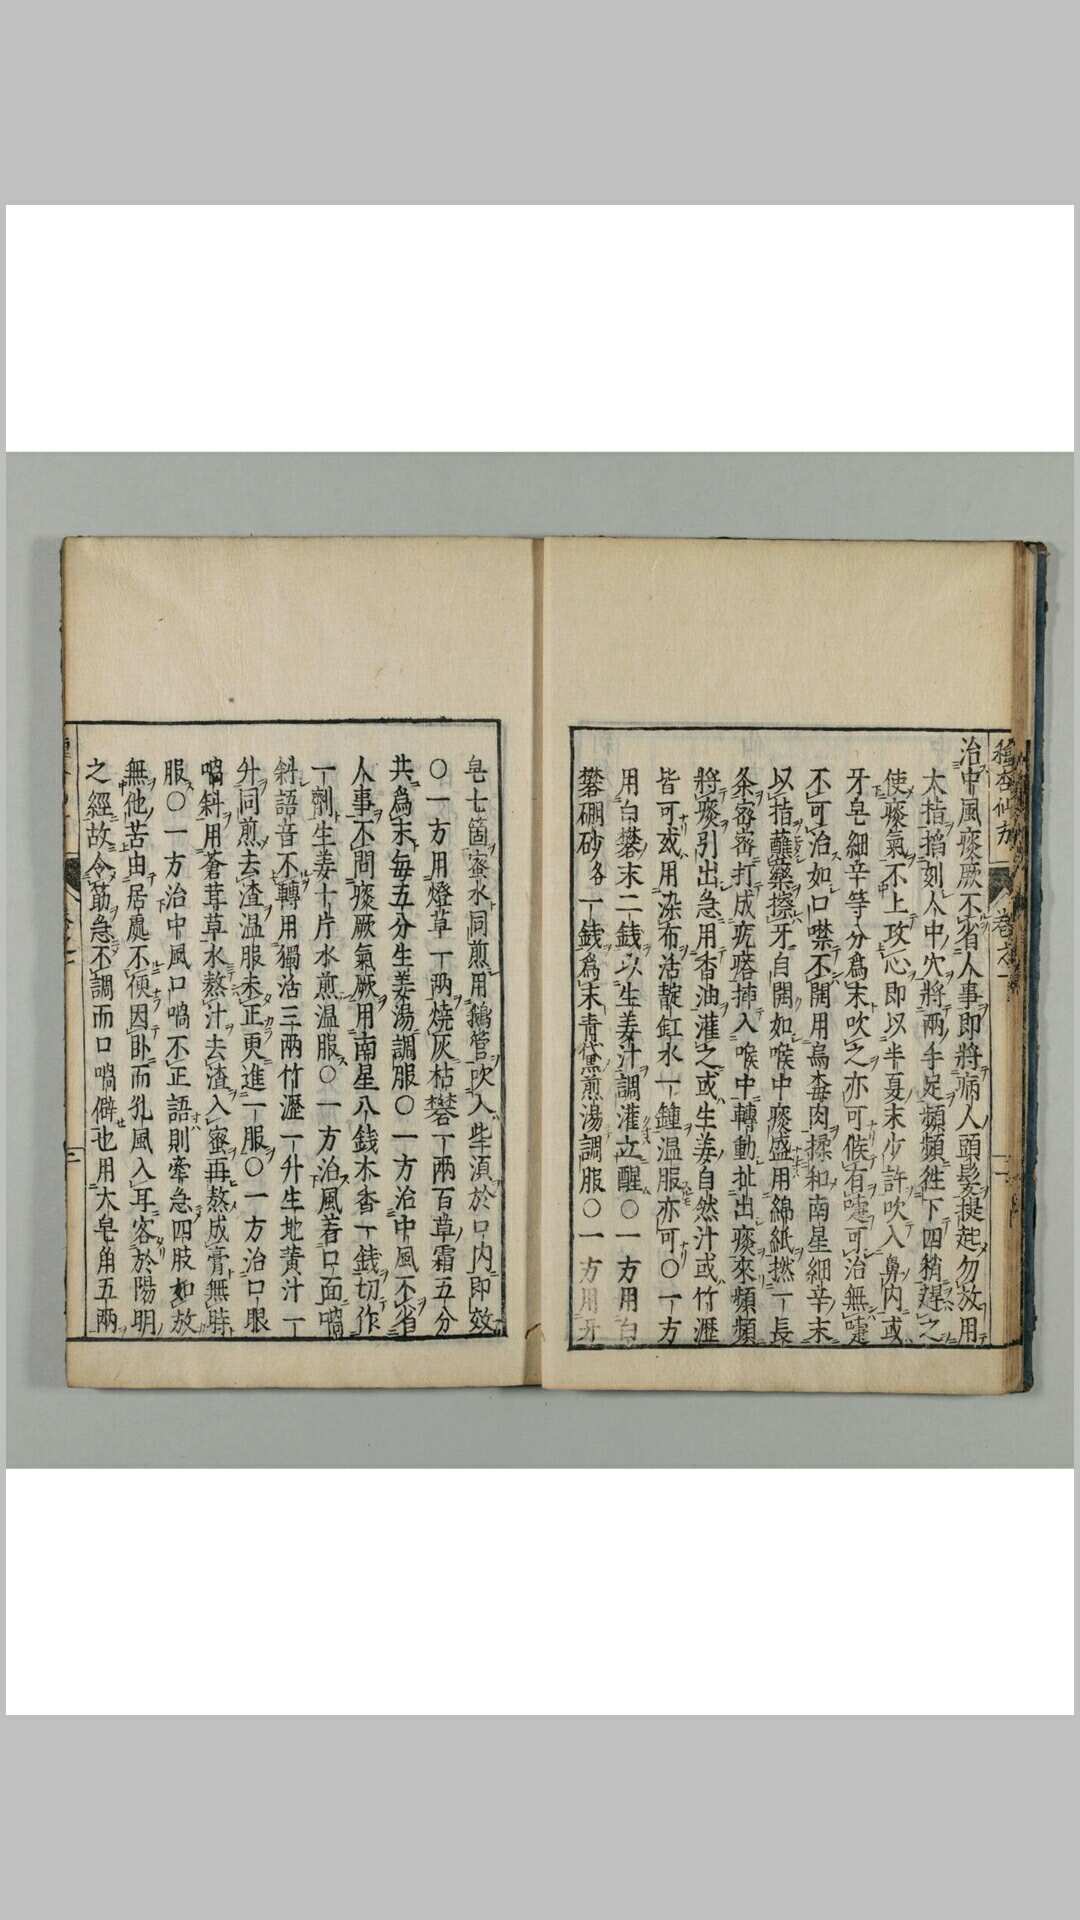 種杏仙方 卷之一
治中風痰厥不省人事即將病人頭髮提起勿放用
大指掐刻人中穴將兩手足頻頻徃下四稍趕之
使痰氣不上攻心即以半夏末少許吹入鼻內或
牙皂細辛等分爲末吹之亦可候有嚏可治無嚏
不可治如口噤不開用烏梅肉揉和南星細辛末
以指蘸藥擦牙自開如喉中痰盛用綿紙撚一長
条密密打成疙瘩揷入喉中轉動扯出痰來頻頻
將痰引出急用香油灌之或生姜自然汁或竹瀝
皆可或用染布活靛缸水一鐘温服亦可○一方
用白礬末二錢以生姜汁調灌立醒○一方用白
礬硼砂各一錢爲末青黛煎湯調服○一方用牙
皂七箇蜜水同煎用鵝管吹入些湏於口內即效
○一方用燈草一兩燒灰枯礬一兩百草霜五分
共爲末每五分生姜湯調服○一方治中風不省
人事不問痰厥氣厥用南星八錢木香一錢切作
一劑生姜十片水煎温服○一方治風着口面喎
斜語音不轉用獨活三兩竹瀝一升生地黃汁一
升同煎去渣温服未正更進一服○一方治口眼
喎斜用蒼茸草水熬汁去渣入蜜再熬成膏無時
服○一方治中風口喎不正語則牽急四肢如放
無他苦由居處不便因臥而孔風入耳客於陽明
之經故令筋急不調而口喎僻也用大皂角五兩